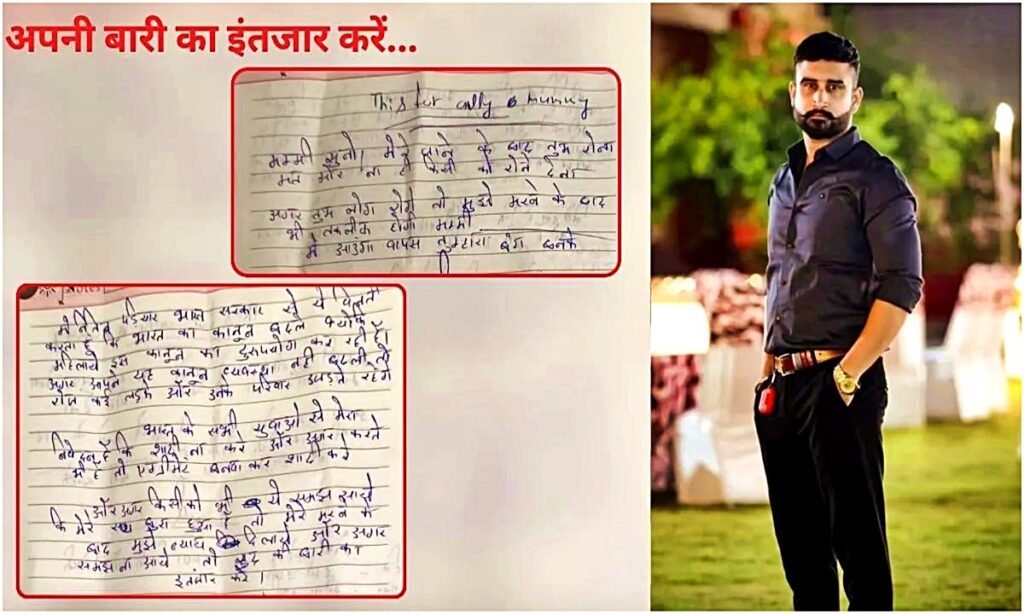 अपनी बारी का इंतजार करें...
This for only mummy
मम्मी सुनो, मेरे जाने के बाद तुम रोना
मत और ना ही किसी को रोने देना
अगर तुम लोग रोये तो मुझे मरने के बाद
भी तकलीफ होगी मम्मी
में आउंगा वापस तुम्हारा
में नितिन पडियार भारत सरकार से ये विनती
करता हूँ कि भारत का कानून बदले क्योंकि
महिलाये इस कानून का दुरूपयोग कर रही हैं
अगर आपने यह कानून व्यवस्था नही बदली तो
रोज कई लड़के और उनके परिवार उजड़ते रहेंगे
भारत के सभी युवाओ से मेरा
निवेदन है कि शादी ना करे और अगर करते
भी है तो एग्रीमेंट बनवा कर शादी करे
और अगर किसी को भी ये समझ आये
कि मेरे साथ बुरा हुआ है तो मेरे मरने के
बाद मुझे न्याय दिलाये और अगर
समझ ना आये तो खुद की बारी का
इंतजार करे।